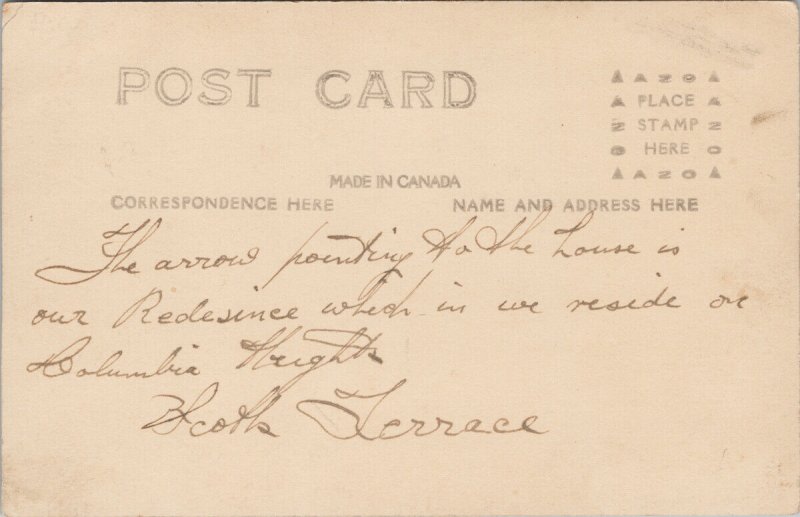 POST CARD
▲ A Z O ▲
▲ PLACE ▲
Z STAMP Z
O HERE O
▲ A Z O ▲
MADE IN CANADA
CORRESPONDENCE HERE
NAME AND ADDRESS HERE
The arrow pointing to the house is
our Redesince which in we reside on
Columbia Heights
Terrace